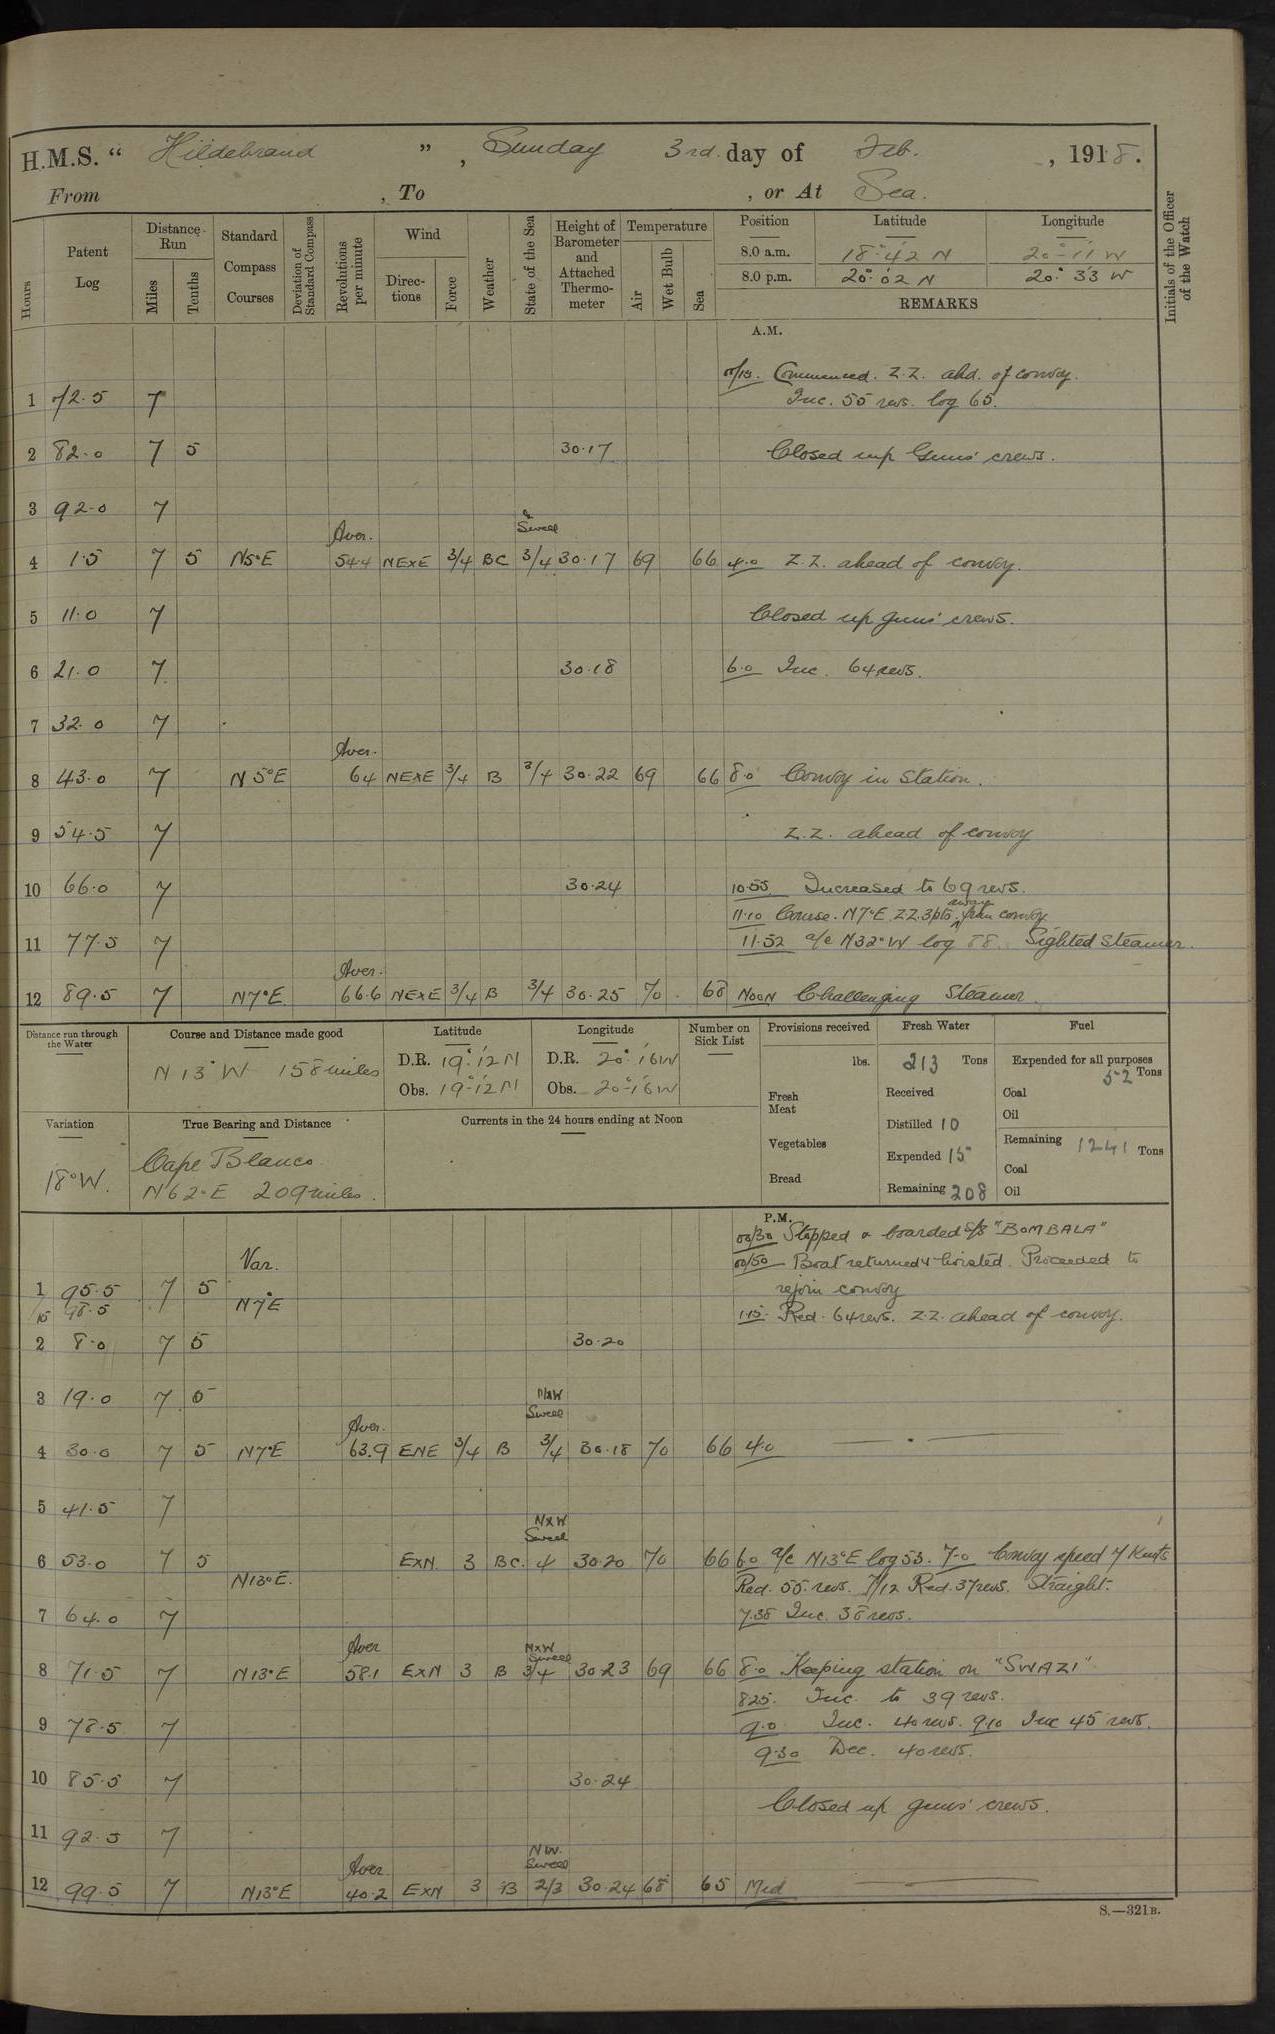 H.M.S. “ Hildebrand ”, Sunday 3rd. day of Feb. , 1918.
From , To , or At Sea.
Hours
Patent Log
Distance Run
Miles
Tenths
Standard Compass Courses
Deviation of Standard Compass
Revolutions per minute
Wind
Directions
Force
Weather
State of the Sea
Height of Barometer and Attached Thermometer
Temperature
Air
Wet Bulb
Sea
Position Latitude Longitude
8.0 a.m. 18°·42´ N 20°·11´ W
8.0 p.m. 20°·02´ N 20°·33´ W
REMARKS
Initials of the Officer of the Watch
A.M.
00/15. Commenced. Z.Z. ahd. of convoy.
1 72.5 7 Inc. 55 revs. log 65.
2 82.0 7 5 30.17 Closed up Guns' crews.
3 92.0 7
Aver. & Swell
4 1.5 7 5 N5°E 54.4 NExE 3/4 BC 3/4 30.17 69 66 4.0 Z.Z. ahead of convoy.
5 11.0 7 Closed up guns' crews.
6 21.0 7 30.18 6.0 Inc. 64 revs.
7 32.0 7
Aver.
8 43.0 7 N5°E 64 NExE 3/4 B 3/4 30.22 69 66 8.0 Convoy in Station.
9 54.5 7 Z.Z. ahead of convoy
10 66.0 7 30.24 10.55 Increased to 69 revs.
11.10 Course. N7°E. Z.Z. 3pts away from convoy
11 77.5 7 11.52 a/c N32°W log 88. Sighted steamer.
Aver.
12 89.5 7 N7°E 66.6 NExE 3/4 B 3/4 30.25 70 68 Noon Challenging Steamer.
Distance run through the Water
Course and Distance made good
N 13° W 158 miles
Latitude
D.R. 19°·12´ N
Obs. 19°·12´ N
Longitude
D.R. 20°·16´ W
Obs. 20°·16´ W
Number on Sick List
Provisions received
lbs.
Fresh Meat
Vegetables
Bread
Fresh Water
213 Tons
Received
Distilled 10
Expended 15
Remaining 208
Fuel
Expended for all purposes
52 Tons
Coal
Oil
Remaining 1241 Tons
Coal
Oil
Variation
18°W.
True Bearing and Distance
Cape Blanco
N62°E 209 miles.
Currents in the 24 hours ending at Noon
P.M.
00/30 Stopped & boarded S/S "BOMBALA"
Var. 00/50 Boat returned & hoisted. Proceeded to
1 95.5 7 5 rejoin convoy
/15 98.5 N7°E 1.15. Red. 64 revs. Z.Z. ahead of convoy.
2 8.0 7 5 30.20
3 19.0 7 5 NxW Swell
Aver.
4 30.0 7 5 N7°E 63.9 ENE 3/4 B 3/4 30.18 70 66 4.0
5 41.5 7
NxW Swell
6 53.0 7 5 ExN 3 BC. 4 30.20 70 66 6.0 a/c N13°E log 53. 7.0 Convoy speed 7 Knots
N13°E. Red. 55. revs. 7/12 Red. 37 revs. Straight.
7 64.0 7 7.38 Inc. 38 revs.
Aver NxW Swell
8 71.5 7 N13°E 58.1 ExN 3 B 3/4 30.23 69 66 8.0 Keeping station on "SWAZI"
825. Inc. to 39 revs.
9 78.5 7 9.0 Inc. 40 revs. 9.10 Inc 45 revs.
9.30 Dec. 40 revs.
10 85.5 7 30.24
Closed up guns' crews.
11 92.5 7
Aver. NW. Swell
12 99.5 7 N13°E 40.2 ExN 3 B 2/3 30.24 68 65 Mid
S.—321B.